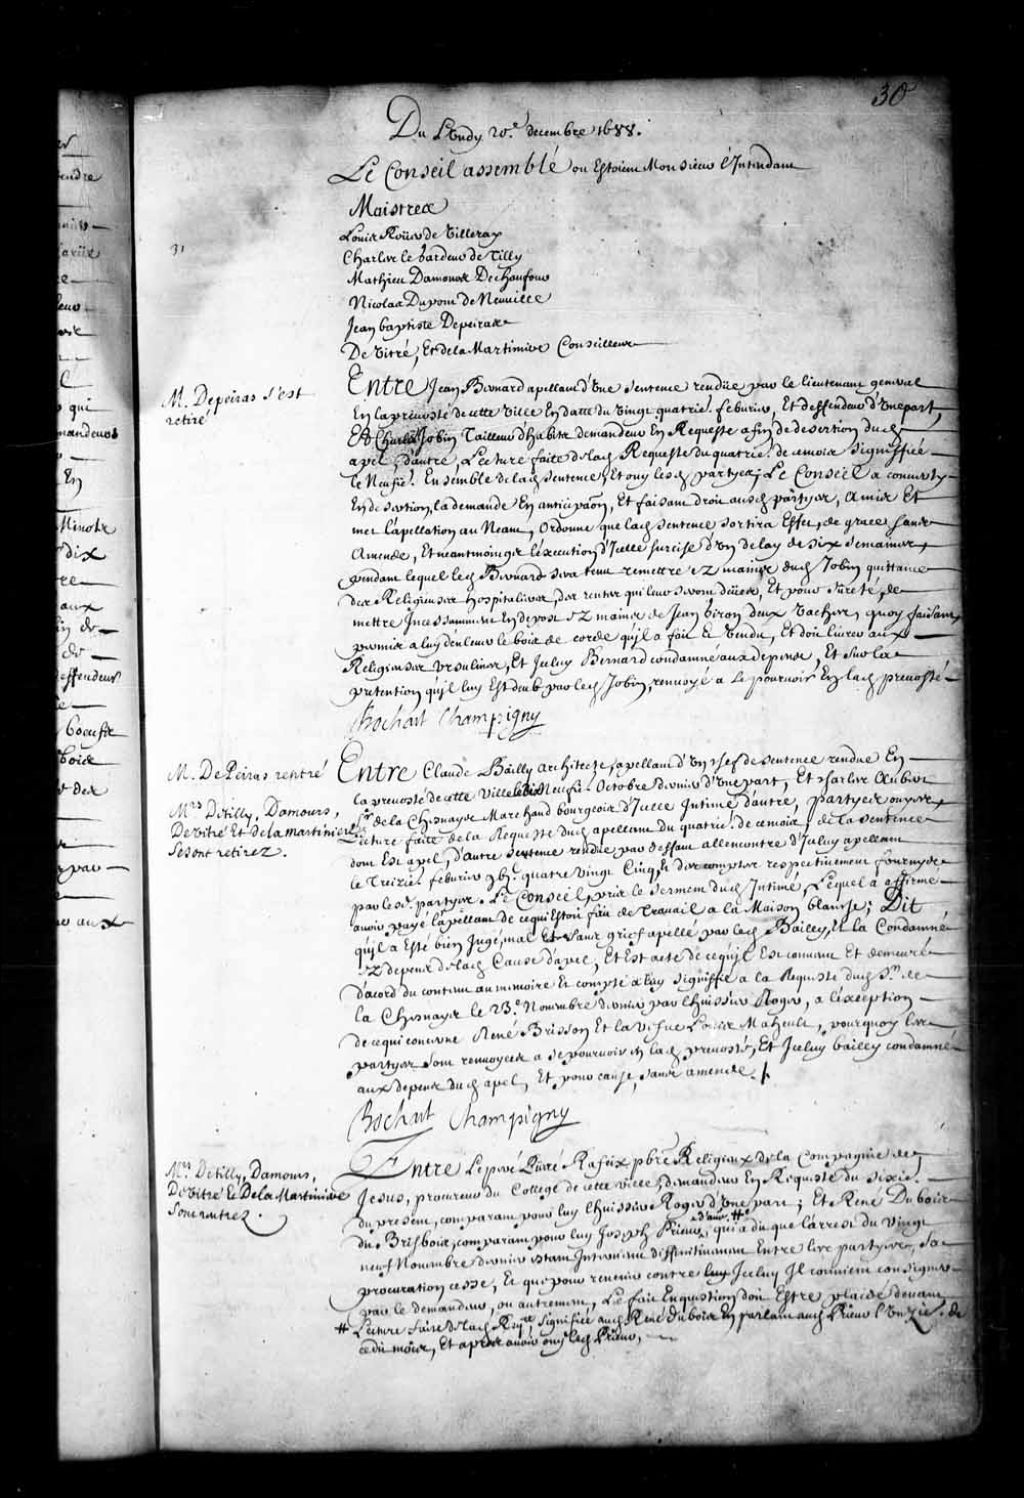 30
Du Lundy 20.e decembre 1688.
Le Conseil assemblé ou Estoient Monsieur l'Intendant
Maistres
Louis Roüer de Villeray
Charles le Gardeur de Tilly
Mathieu Damours Deschaufour
Nicolas Dupont de Neuville
Jean baptiste Depeiras
De Vitré, Et de la Martiniere Conseillers
31
M. Depeiras s'est
retiré
Entre Jean Bernard apellant d'Une sentence rendüe par le lieutenant general
En la prevosté de cette Ville En datte du Vingt quatrie. feburier, Et deffendeur d'Une part,
Et Charles Jobin Tailleur d'habits demandeur En Requeste afin de desertion dud.
apel, d'autre, Lecture faite de lad. Requeste du quatrie. de ce mois signiffiée
le Neufie. Ensemble de lad. sentence, Et ouy lesd. partyes; Le Conseil a converty
En desertion, la demande En anticipaōn, Et faisant droit ausd. partyes, a mis Et
met l'apellation au Neant, Ordonne que lad. sentence sortira Effet, de grace sans
Amende, Et neantmoins l'execution d'Icelle surcise d'Un delay de six semaines,
pendant lequel led. Bernard sera tenu remettre ez mains dud. Jobin quittance
des Religieuses hospitalieres, des rentes qui leur seront düees, Et pour sureté, de
mettre Incessamment En depost ez mains de Jean Giron deux Vaches, quoy faisant
permis a luy d'enlever le bois de corde qu'il a fait Et Vendu, Et doit livrer aux
Religieuses Ursulines, Et Iceluy Bernard condamné aux depens, Et sur la
pretention qu'il luy Est deub par led. Jobin, renvoyé a se pourvoir En lad. prevosté
Bochart Champigny
M. DePeiras rentré
Mrs Detilly, Damours,
De Vitré Et de la martiniere
se sont retirez.
Entre Claude Bailly architecte, apellant d'Un chef de sentence rendue En
la prevosté de cette Ville le Neufie. Octobre dernier d'Une part, Et Charles Aubert
sr. de la Chesnaye Marchand bourgeois d'Icelle Intimé d'autre, partyes ouyes,
Lecture faite de la Requeste dud. apellant du quatrie. de ce mois, de la sentence
dont Est apel, d'autre sentence rendüe par deffaut allencontre d'Iceluy apellant
le Treizie. feburier gbc. quatre Vingt Cinq, Et des comptes respectivement fournys
par lesd. partyes. Le Conseil, pris le serment dud. Intimé, Lequel a affirmé
avoir payé l'apellant de ce qui Estoit fait de Travail a la Maison blanche; Dit
qu'il a Esté bien Jugé, mal Et sans grief apellé par led. Bailly, Et l'a Condamné
Ez depens de lad. Cause d'apel, Et Est acte de ce qu'il Est convenu Et demeuré
d'acord du contenu au memoire Et compte a luy signiffié a la Requeste dud. sr. de
la Chesnaye le 23.e Novembre dernier par l'huissier Roger, a l'exception
de ce qui concerne René Brisson Et la Vefue Louis Maheult, pourquoy les
partyes sont renvoyées a se pourvoir En lad. prevosté, Et Iceluy bailly condamné
aux depens dud. apel, Et pour cause, sans amende ./.
Bochart Champigny
Mrs Detilly, Damours,
De Vitré Et De la Martiniere
sont rentrez.
Entre Le pere Piere Rafeix pbre Religieux de la Compagnie de
Jesus, procureur du College de cette ville, demandeur En Requeste du sixie.
du present, comparant pour luy l'huissier Roger d'Une part; Et René Dubois
du Brisbois, comparant pour luy Joseph Prieur, d'autre # qui a dit que l'arrest du Vingt
neuf Novembre dernier estant Intervenu diffinitivement Entre les partyes, sa
procuration cesse, Et que pour revenir contre Iceluy Il convient consigner
par le demandeur, ou autrement, Le fait En question doit Estre plaidé devant
# Lecture faite de lad. Rqte signifiée aud. René dubois En parlant aud. Prieur l'Onzie. de
cedit mois, Et apres avoir ouy led. Prieur,